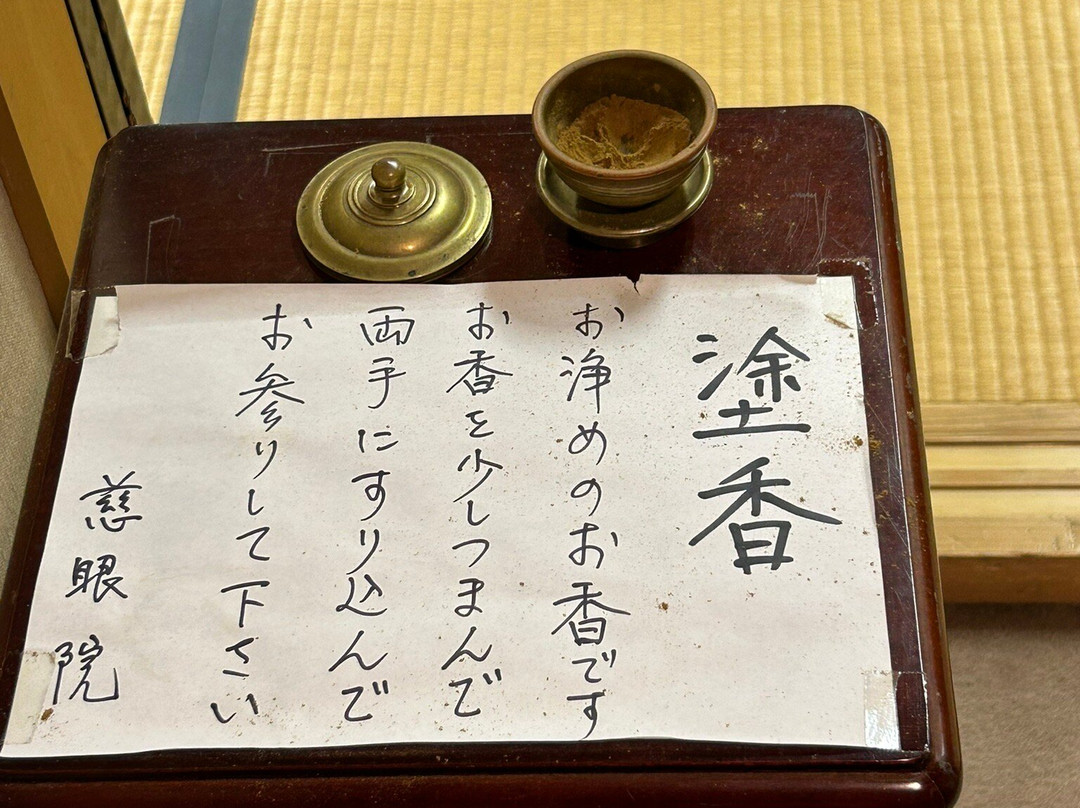 塗香
お浄めのお香です
お香を少しつまんで
両手にすり込んで
お参りして下さい
慈眼院